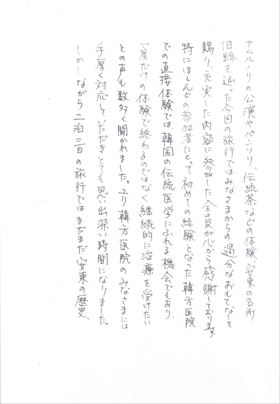 サムルノリの公演やパンソリ、伝統茶などの体験、安東の名所
旧跡を辿った今回の旅行ではみなさまからの過分なおもてなしを
賜り、充実した内容に参加した全員が心から感謝しております。
特にほとんどの参加者にとって初めての経験となった韓方医院
での直接体験では、韓国の伝統医学にふれる機会でもあり、
一度だけの体験で終わるのではなく継続的に治療を受けたい
との声も数多く聞かれました。ユリ韓方医院のみなさまには
手厚く対応していただきとても思い出深い時間になりました。
しかしながら二泊三日の旅行ではまだまだ安東の歴史、